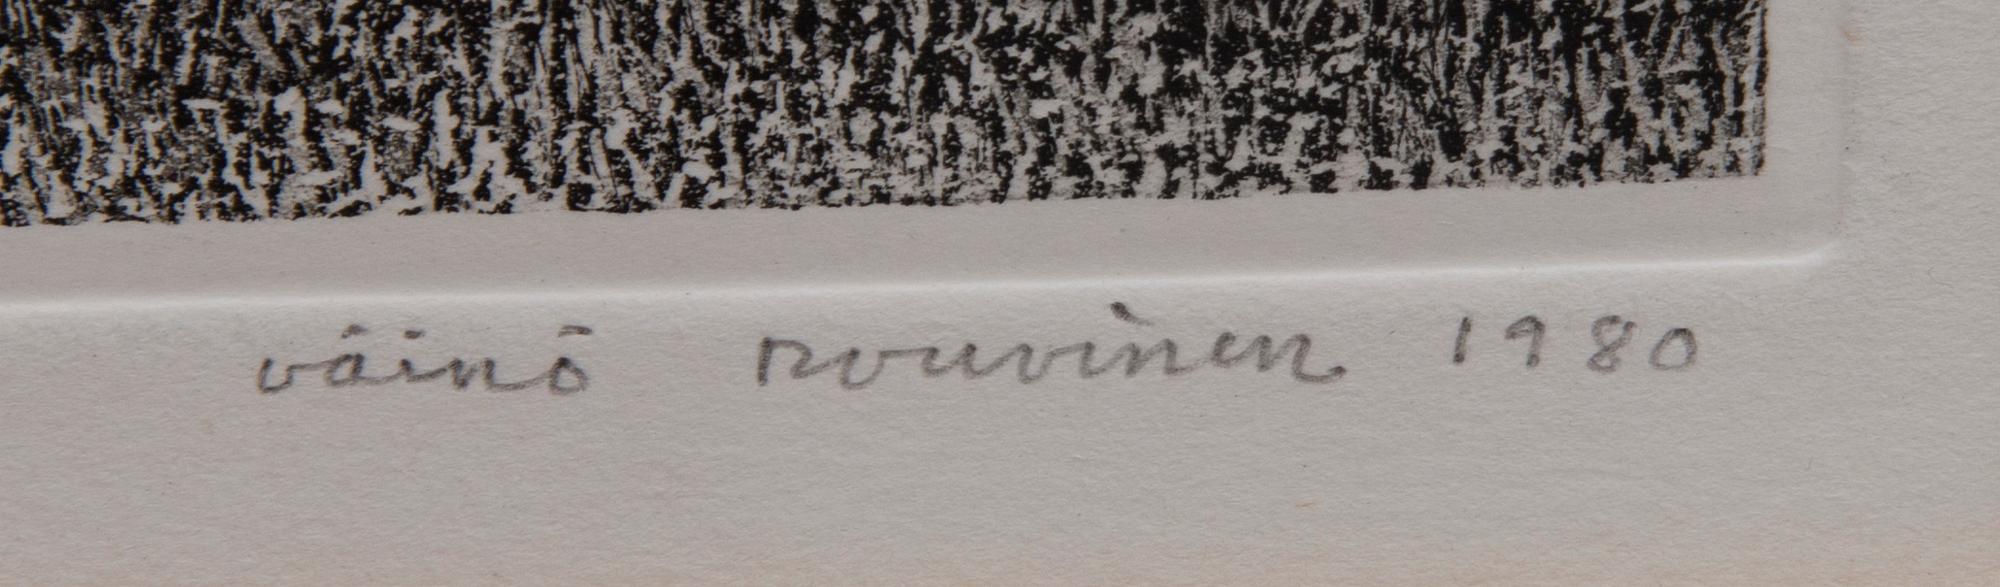 väinö rouvinen 1980